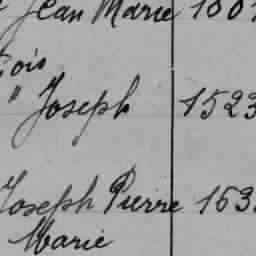 Jean Marie
çois
" Joseph 1523
Joseph Pierre 153
Marie